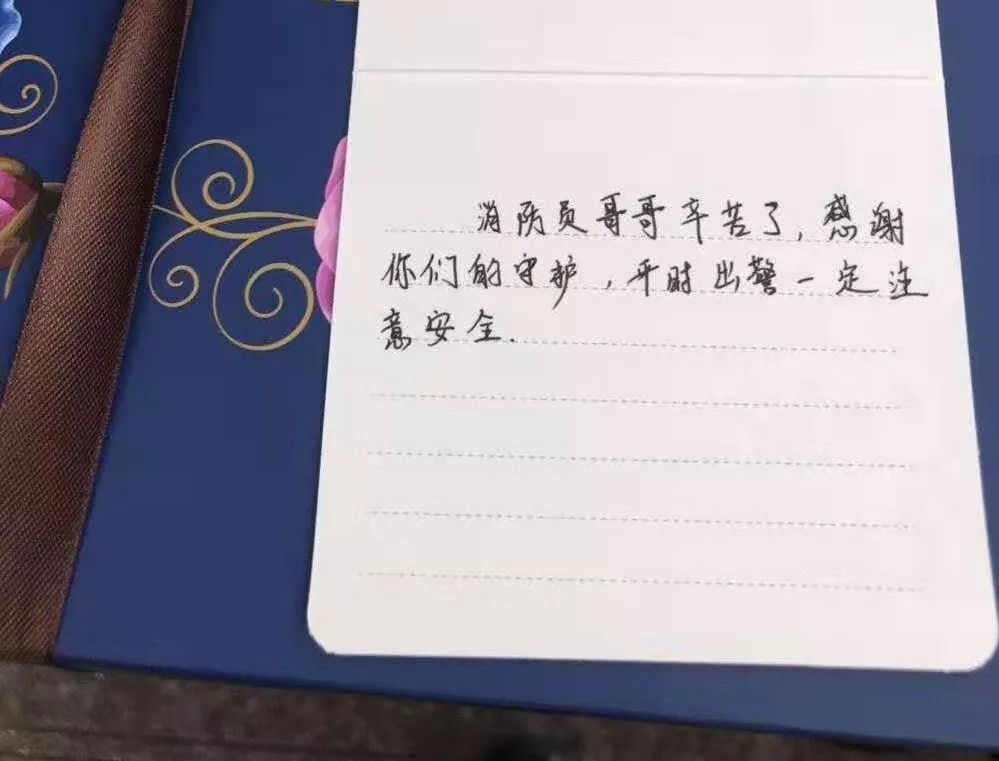 消防员哥哥辛苦了,感谢
你们的守护,平时出警一定注
意安全.